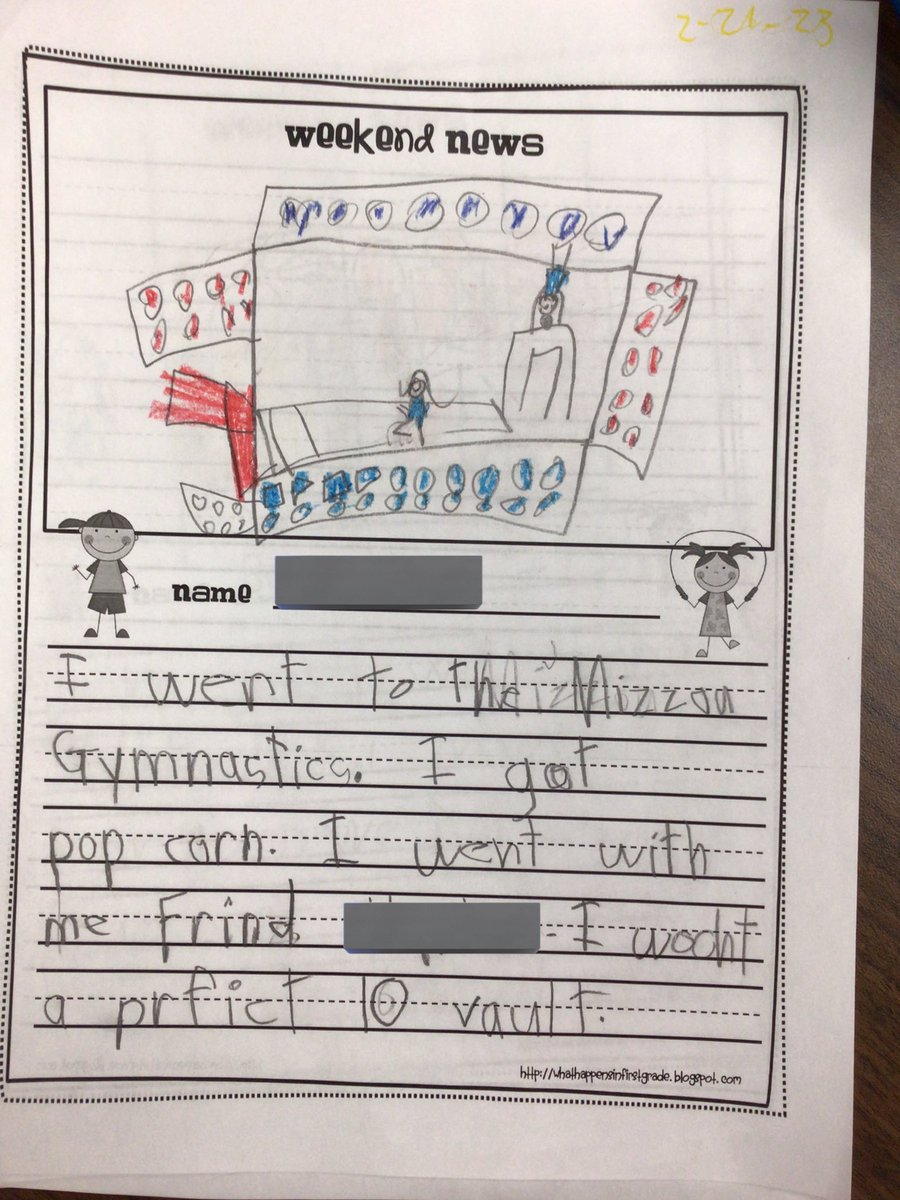 2-21-23
weekend news
name
I went to the Mizzou
Gymnastics. I got
pop corn. I went with
me Frind
. I wocht
a prfict 10 vault.
http://whathappensinfirstgrade.blogspot.com